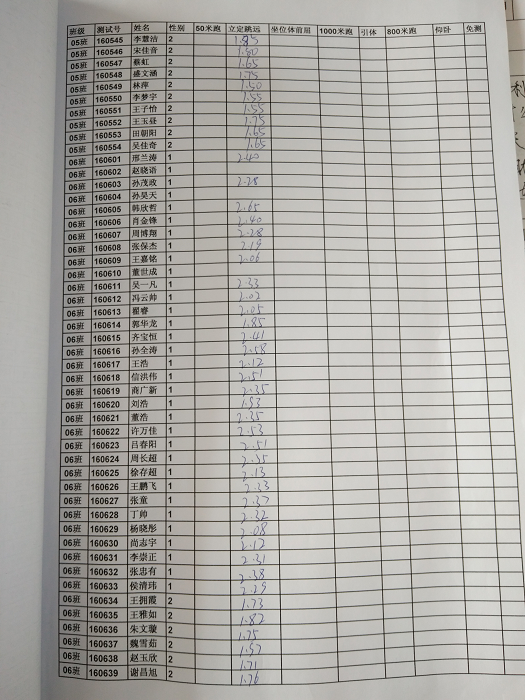 班级 测试号 姓名 性别 50米跑 立定跳远 坐位体前屈 1000米跑 引体 800米跑 仰卧 免测
05班 160545 李慧洁 2 1.85
05班 160546 宋佳音 2 1.80
05班 160547 蔡虹 2 1.65
05班 160548 盛文涵 2 1.75
05班 160549 林萍 2 1.50
05班 160550 李梦宇 2 1.55
05班 160551 王子怡 2 1.55
05班 160552 王玉昼 2 1.75
05班 160553 田朝阳 2 1.65
05班 160554 吴佳奇 2 1.65
06班 160601 邢兰涛 1 2.40
06班 160602 赵晓语 1
06班 160603 孙茂政 1 2.28
06班 160604 孙昊天 1
06班 160605 韩欣哲 1 2.65
06班 160606 肖金锋 1 2.40
06班 160607 周博翔 1 2.28
06班 160608 张保杰 1 2.19
06班 160609 王嘉铭 1 2.06
06班 160610 董世成 1
06班 160611 吴一凡 1 2.33
06班 160612 冯云帅 1 2.02
06班 160613 翟睿 1 2.05
06班 160614 郭华龙 1 1.85
06班 160615 齐宝恒 1 2.41
06班 160616 孙全涛 1 2.58
06班 160617 王浩 1 2.12
06班 160618 信洪伟 1 2.51
06班 160619 商广新 1 2.35
06班 160620 刘浩 1 1.93
06班 160621 董浩 1 2.35
06班 160622 许万佳 1 2.53
06班 160623 吕春阳 1 2.51
06班 160624 周长超 1 2.35
06班 160625 徐存超 1 2.13
06班 160626 王鹏飞 1 2.33
06班 160627 张童 1 2.37
06班 160628 丁帅 1 2.32
06班 160629 杨晓彤 1 2.08
06班 160630 尚志宇 1 2.12
06班 160631 李崇正 1 2.31
06班 160632 张忠有 1 2.38
06班 160633 侯清玮 1 2.29
06班 160634 王拥霞 2 1.73
06班 160635 王雅如 2 1.82
06班 160636 朱文璇 2 1.75
06班 160637 魏雪茹 2 1.57
06班 160638 赵玉欣 2 1.71
06班 160639 谢昌旭 2 1.76